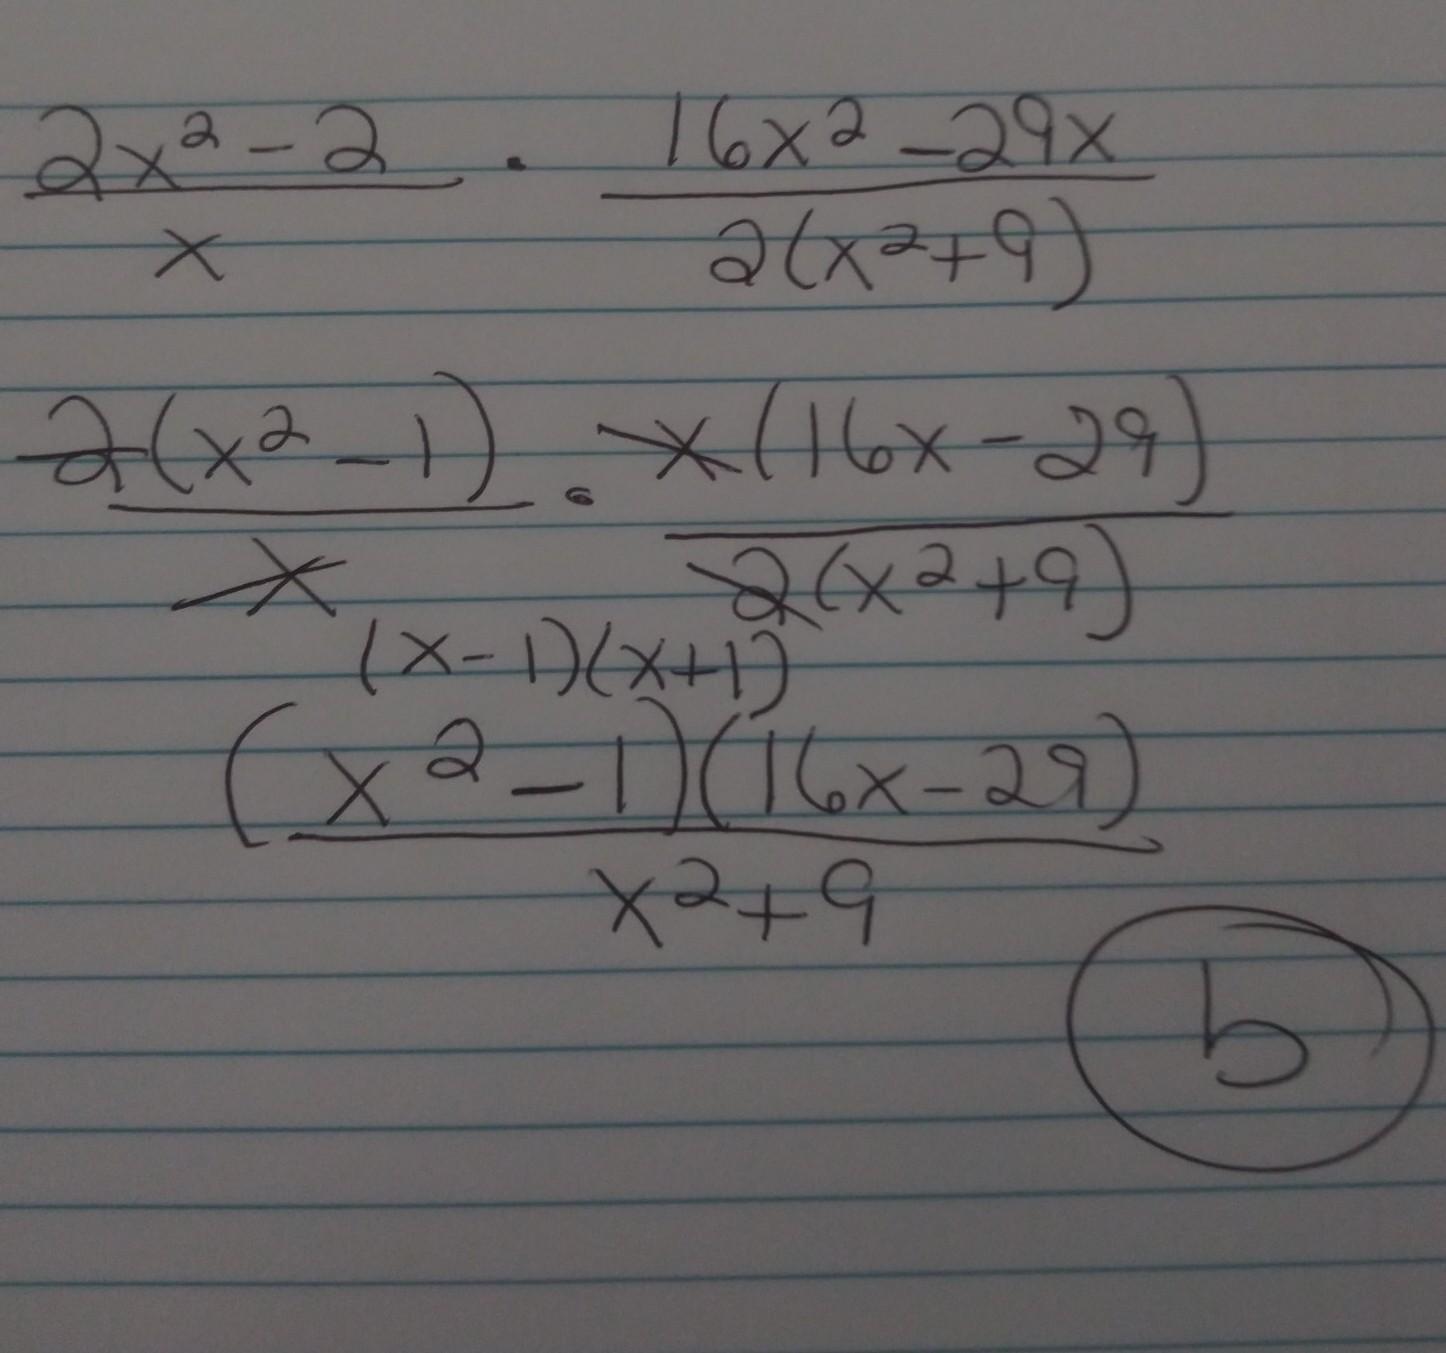 2x² - 2 / x · 16x² - 29x / 2(x² + 9)
2(x² - 1) / x · x(16x - 29) / 2(x² + 9)
(x - 1)(x + 1)
(x² - 1)(16x - 29) / x² + 9
b